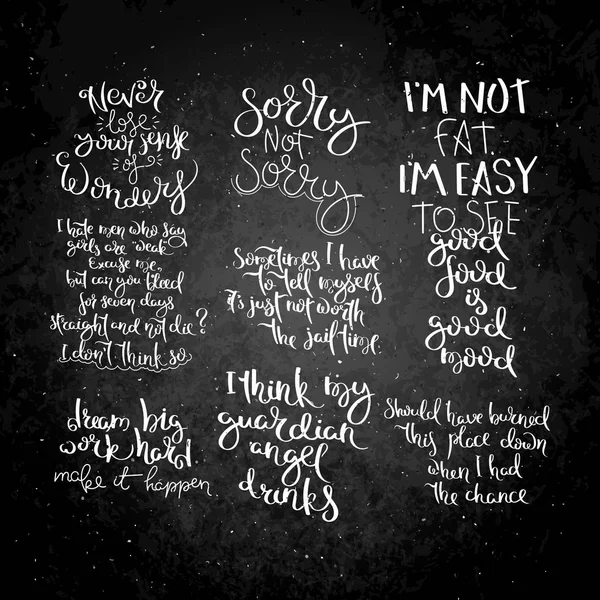 Never
lose
your sense
of
Wonders
Sorry
NOT
Sorry
I'M NOT
FAT.
I'M EASY
TO SEE
I hate men who say
girls are "weak"
Excuse me,
but can you bleed
for seven days
straight and not die?
I don't think so
Sometimes I have
to tell myself
it's just not worth
the jail time.
good
food
is
good
mood
dream big
work hard
make it happen
I think my
guardian
angel
drinks
Should have burned
this place down
when I had
the chance